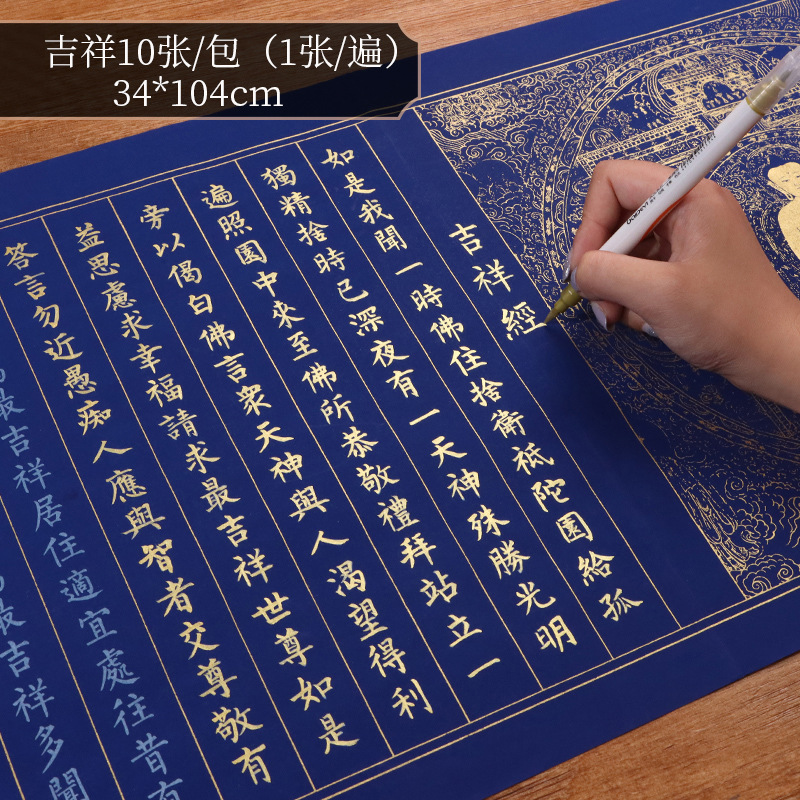 吉祥10张/包（1张/遍）
34*104cm
吉祥經
如是我聞一時佛住捨衛祗陀園給孤
獨精捨時已深夜有一天神殊勝光明
遍照園中來至佛所恭敬禮拜站立一
旁以偈白佛言衆天神與人渴望得利
益思慮求幸福請求最吉祥世尊如是
答言勿近愚痴人應與智者交尊敬有
最吉祥居住適宜處往昔有
最吉祥多聞